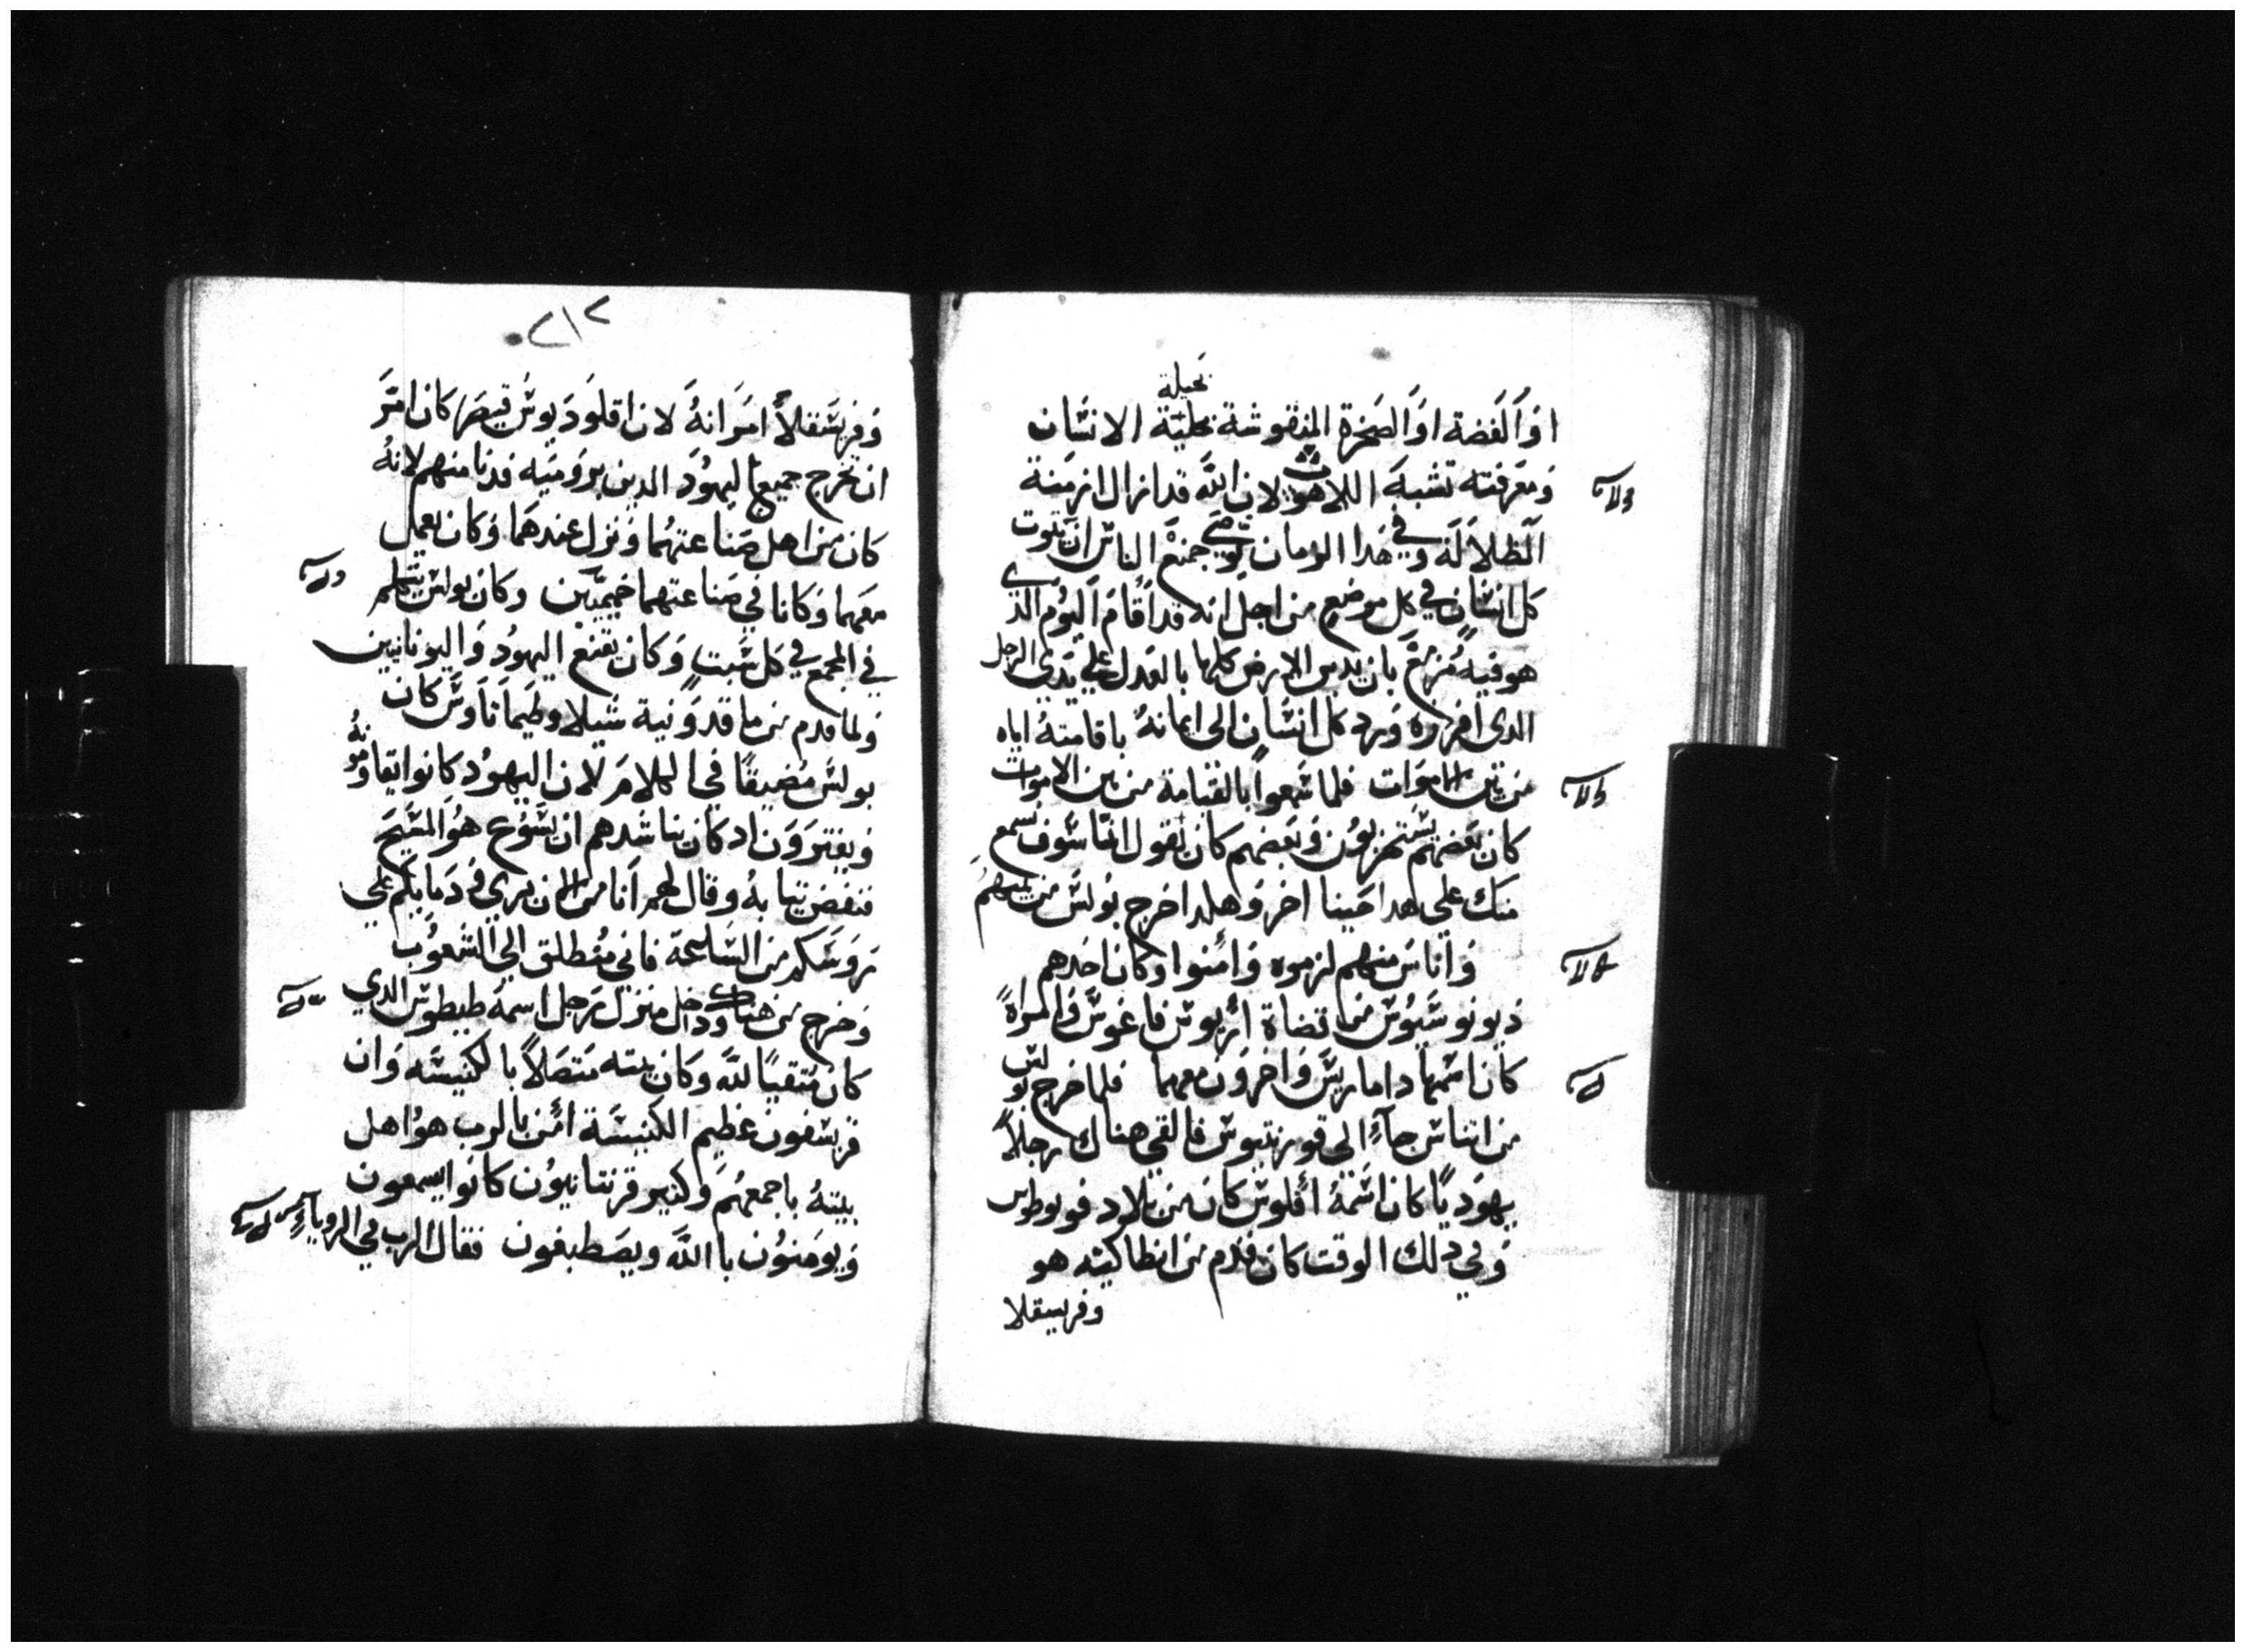 بحيلة
اوَالفَضة اوَالصَخرة المنقوشة بحليّة الانسَان
وَمَعرَفته تشبهَ اللاهوت لان اللَّه قد ازال ازمنة
الظلالَة وَفي هَدا الزمان يُوصي جميعْ الناس ان يتوبَ
كل انسَان في كل موضع من اجل انه قد اقامَ اليوم الدي
هو فيه مُزمعً بان يدين الارض كلها بالعَدل علي يَدي الرجل
الدي افرزه وَرد كل انسَان الي ايمانهُ باقامتهُ اياه
من بين الاموَات فلما سَمعوا بالقيامة من بين الاموات
كان بَعضهم يسَتهزيوُن وَبَعضهم كان يَقول انّا سَوف نسمع
منك علي هدا حَينا اخر وَهكدا خرج بُولسَ من بينهم
وَاناسَ منهم لزموه وَامنوا وكان احَدهم
ديونوسَيُوسَ من قضاة اَريوسَ فاغوسَ وَامراةً
كان اسَمها داماريسَ وَاخروَن معهما فلما خرج بولس
من اتناسَ جاءَ الي قورنتيوسَ فالتقي هناك رجلاً
يهوَديًا كان اسَمهُ اَقلوسَ كان من بلاد فوبوطس
وَفي دلك الوقت كان قدم من انطاكيته هو
وفريسقلا
٢١٢
وَفريسَقلاً امرَاتهُ لان اقلوَديوسَ قيصَر كان امَرَ
ان يخرج جميع اليهوُدَ الدين بروَميَه فدنا منهم لانهُ
كان من اهل صَناعتهُما وَنزل عندهَما وَكان يعمل
معَهما وَكانا في صَناعتهما خيميّين وكان بولسَ يتكلم
في المجمع في كل سَبتٍ وَكان يقنعْ اليهوُدَ وَاليونانيين
وَلما قدم من ماقدوَنية شيلا وطيمَاتاوسَ كان
بولسَ مُضيقًا في الكلامَ لان اليهوُد كانوا يقاومونهُ
وَيفتروَن اد كان يناشَدهم ان يسَوع هوُ المسَيحَ
فنفض تيابهُ وقال لهمر اَنا من الان بري في دمايكم علي
رَوسَكم من السَاعة فاني مُنطلق الي الشعوُب
وَخرج من هناك ودخل منزل رَجل اسمهُ طيطوسَ الدي
كان مُتقيًا للَّه وَكان بيته مَتصَلاً بالكنيسَه وَان
قريسفوَن عَظيم الكنيسَة اَمَن بالرب هوُ اهل
بيتهُ باجمعهُم وَكتير قرنتانيوُن كانوا يسمعون
وَيومَنوُن بااللَّه ويصَطبغون فقال الرب في الروياء